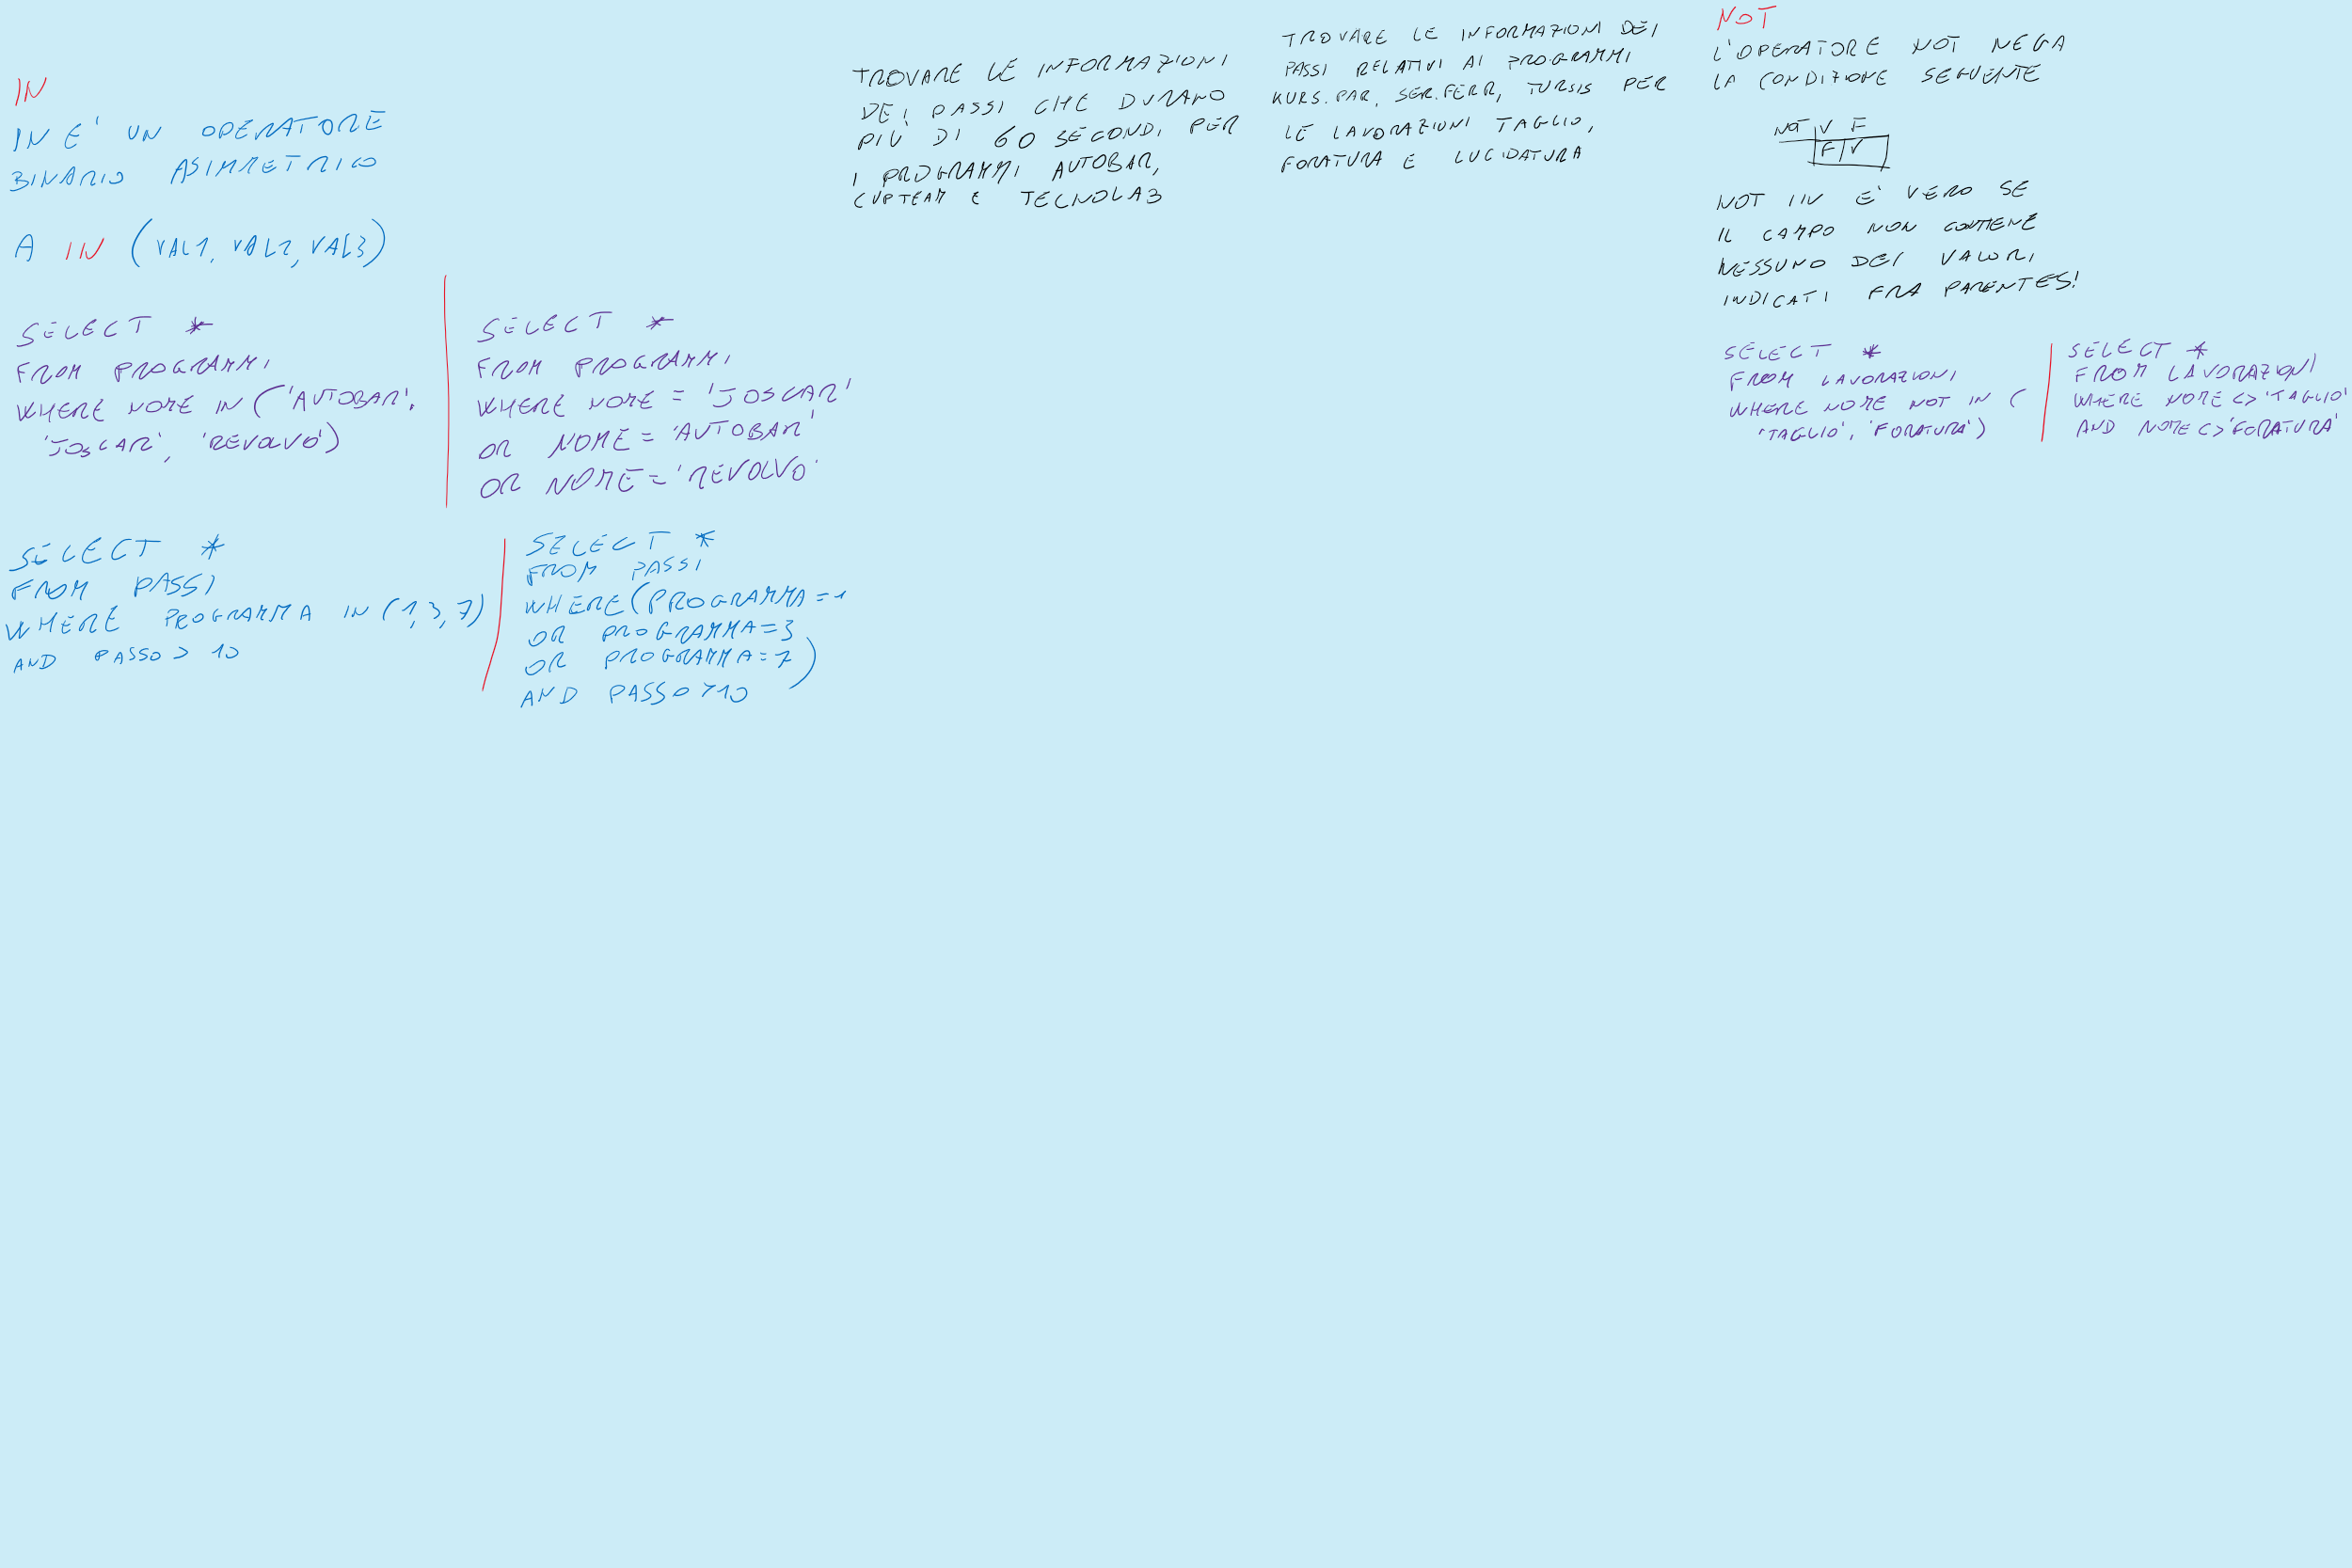 IN
IN E' UN OPERATORE
BINARIO ASIMMETRICO
A IN (VAL1, VAL2, VAL3)
SELECT *
FROM PROGRAMMI
WHERE NOME IN ('AUTOBAR',
'JOSCAR', 'REVOLVO')
SELECT *
FROM PROGRAMMI
WHERE NOME = 'JOSCAR'
OR NOME = 'AUTOBAR'
OR NOME = 'REVOLVO'
SELECT *
FROM PASSI
WHERE PROGRAMMA IN (1, 3, 7)
AND PASSO > 10
SELECT *
FROM PASSI
WHERE (PROGRAMMA = 1
OR PROGRAMMA = 3
OR PROGRAMMA = 7)
AND PASSO > 10
TROVARE LE INFORMAZIONI
DEI PASSI CHE DURANO
PIÙ DI 60 SECONDI PER
I PROGRAMMI AUTOBAR,
CUPTEAM E TECNOLA3
TROVARE LE INFORMAZIONI DEI
PASSI RELATIVI AI PROGRAMMI
KURS.PAR, SER.FERR, TURSIS PER
LE LAVORAZIONI TAGLIO,
FORATURA E LUCIDATURA
NOT
L'OPERATORE NOT NEGA
LA CONDIZIONE SEGUENTE
NOT V F
F V
NOT IN E' VERO SE
IL CAMPO NON CONTIENE
NESSUNO DEI VALORI
INDICATI FRA PARENTESI
SELECT *
FROM LAVORAZIONI
WHERE NOME NOT IN (
'TAGLIO', 'FORATURA')
SELECT *
FROM LAVORAZIONI
WHERE NOME <> 'TAGLIO'
AND NOME <> 'FORATURA'